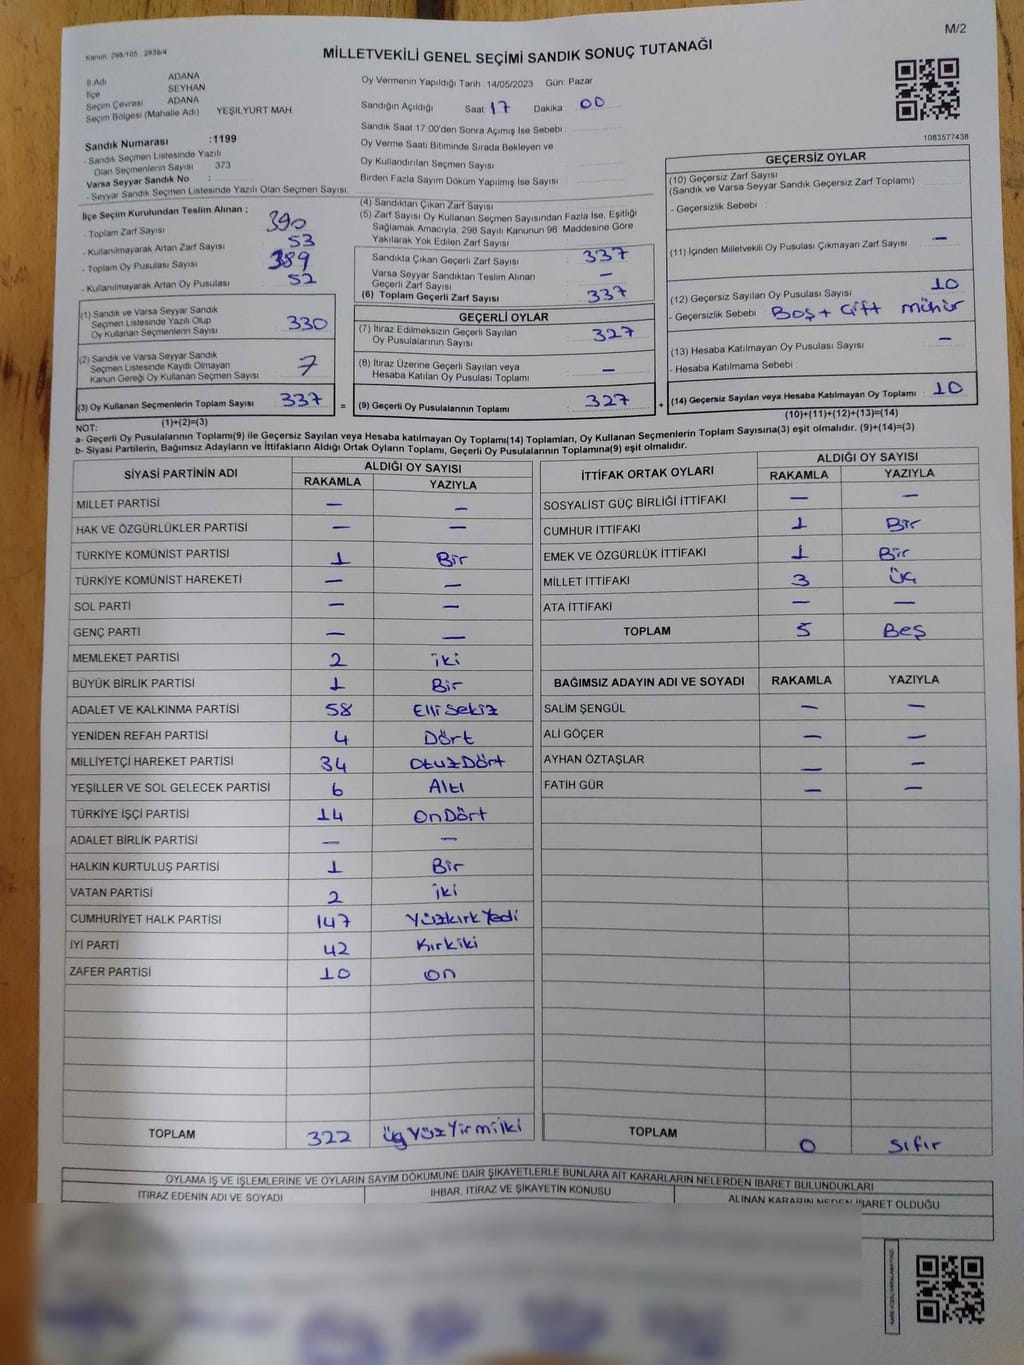 M/2
Kanun. 298/105 . 2839/4
MİLLETVEKİLİ GENEL SEÇİMİ SANDIK SONUÇ TUTANAĞI
İl Adı ADANA
İlçe SEYHAN
Seçim Çevresi ADANA
Seçim Bölgesi (Mahalle Adı) YEŞİLYURT MAH
Sandık Numarası :1199
- Sandık Seçmen Listesinde Yazılı
Olan Seçmenlerin Sayısı 373
Varsa Seyyar Sandık No :
- Seyyar Sandık Seçmen Listesinde Yazılı Olan Seçmen Sayısı
Oy Vermenin Yapıldığı Tarih :14/05/2023 Gün: Pazar
Sandığın Açıldığı Saat: 17 Dakika 00
Sandık Saat 17:00'den Sonra Açımış İse Sebebi :
Oy Verme Saati Bitiminde Sırada Bekleyen ve
Oy Kullandırılan Seçmen Sayısı
Birden Fazla Sayım Döküm Yapılmış İse Sayısı
1083577438
İlçe Seçim Kurulundan Teslim Alınan ;
- Toplam Zarf Sayısı 390
- Kullanılmayarak Artan Zarf Sayısı 53
- Toplam Oy Pusulası Sayısı 389
- Kullanılmayarak Artan Oy Pusulası 52
(1) Sandık ve Varsa Seyyar Sandık
Seçmen Listesinde Yazılı Olup
Oy Kullanan Seçmenlerin Sayısı 330
(2) Sandık ve Varsa Seyyar Sandık
Seçmen Listesinde Kayıtlı Olmayan
Kanun Gereği Oy Kullanan Seçmen Sayısı 7
(3) Oy Kullanan Seçmenlerin Toplam Sayısı 337
(1)+(2)=(3)
(4) Sandıktan Çıkan Zarf Sayısı
(5) Zarf Sayısı Oy Kullanan Seçmen Sayısından Fazla İse, Eşitliği
Sağlamak Amacıyla, 298 Sayılı Kanunun 98. Maddesine Göre
Yakılarak Yok Edilen Zarf Sayısı
Sandıkta Çıkan Geçerli Zarf Sayısı : 337
Varsa Seyyar Sandıktan Teslim Alınan
Geçerli Zarf Sayısı : —
(6) Toplam Geçerli Zarf Sayısı : 337
GEÇERLİ OYLAR
(7) İtiraz Edilmeksizin Geçerli Sayılan
Oy Pusulalarının Sayısı : 327
(8) İtiraz Üzerine Geçerli Sayılan veya
Hesaba Katılan Oy Pusulası Toplamı : —
= (9) Geçerli Oy Pusulalarının Toplamı : 327
GEÇERSİZ OYLAR
(10) Geçersiz Zarf Sayısı
(Sandık ve Varsa Seyyar Sandık Geçersiz Zarf Toplamı)
- Geçersizlik Sebebi :
(11) İçinden Milletvekili Oy Pusulası Çıkmayan Zarf Sayısı —
(12) Geçersiz Sayılan Oy Pusulası Sayısı 10
- Geçersizlik Sebebi Boş + Çift mühür
(13) Hesaba Katılmayan Oy Pusulası Sayısı —
- Hesaba Katılmama Sebebi :
+ (14) Geçersiz Sayılan veya Hesaba Katılmayan Oy Toplamı : 10
(10)+(11)+(12)+(13)=(14)
NOT:
a- Geçerli Oy Pusulalarının Toplamı(9) ile Geçersiz Sayılan veya Hesaba katılmayan Oy Toplamı(14) Toplamları, Oy Kullanan Seçmenlerin Toplam Sayısına(3) eşit olmalıdır. (9)+(14)=(3)
b- Siyasi Partilerin, Bağımsız Adayların ve İttifakların Aldığı Oyların Toplamı, Geçerli Oy Pusulalarının Toplamına(9) eşit olmalıdır.
SİYASİ PARTİNİN ADI ALDIĞI OY SAYISI
RAKAMLA YAZIYLA
MİLLET PARTİSİ — —
HAK VE ÖZGÜRLÜKLER PARTİSİ — —
TÜRKİYE KOMÜNİST PARTİSİ 1 Bir
TÜRKİYE KOMÜNİST HAREKETİ — —
SOL PARTİ — —
GENÇ PARTİ — —
MEMLEKET PARTİSİ 2 iki
BÜYÜK BİRLİK PARTİSİ 1 Bir
ADALET VE KALKINMA PARTİSİ 58 Elli Sekiz
YENİDEN REFAH PARTİSİ 4 Dört
MİLLİYETÇİ HAREKET PARTİSİ 34 OtuzDört
YEŞİLLER VE SOL GELECEK PARTİSİ 6 Altı
TÜRKİYE İŞÇİ PARTİSİ 14 OnDört
ADALET BİRLİK PARTİSİ — —
HALKIN KURTULUŞ PARTİSİ 1 Bir
VATAN PARTİSİ 2 iki
CUMHURİYET HALK PARTİSİ 147 Yüzkırk Yedi
İYİ PARTİ 42 Kırkiki
ZAFER PARTİSİ 10 on
TOPLAM 322 üçYüzYirmiiki
İTTİFAK ORTAK OYLARI ALDIĞI OY SAYISI
RAKAMLA YAZIYLA
SOSYALİST GÜÇ BİRLİĞİ İTTİFAKI — —
CUMHUR İTTİFAKI 1 Bir
EMEK VE ÖZGÜRLÜK İTTİFAKI 1 Bir
MİLLET İTTİFAKI 3 Üç
ATA İTTİFAKI — —
TOPLAM 5 Beş
BAĞIMSIZ ADAYIN ADI VE SOYADI RAKAMLA YAZIYLA
SALİM ŞENGÜL — —
ALİ GÖÇER — —
AYHAN ÖZTAŞLAR — —
FATİH GÜR — —
TOPLAM 0 Sıfır
OYLAMA İŞ VE İŞLEMLERİNE VE OYLARIN SAYIM DÖKÜMÜNE DAİR ŞİKAYETLERLE BUNLARA AİT KARARLARIN NELERDEN İBARET BULUNDUKLARI
İTİRAZ EDENİN ADI VE SOYADI İHBAR, İTİRAZ VE ŞİKAYETİN KONUSU ALINAN KARARIN NEDEN İBARET OLDUĞU